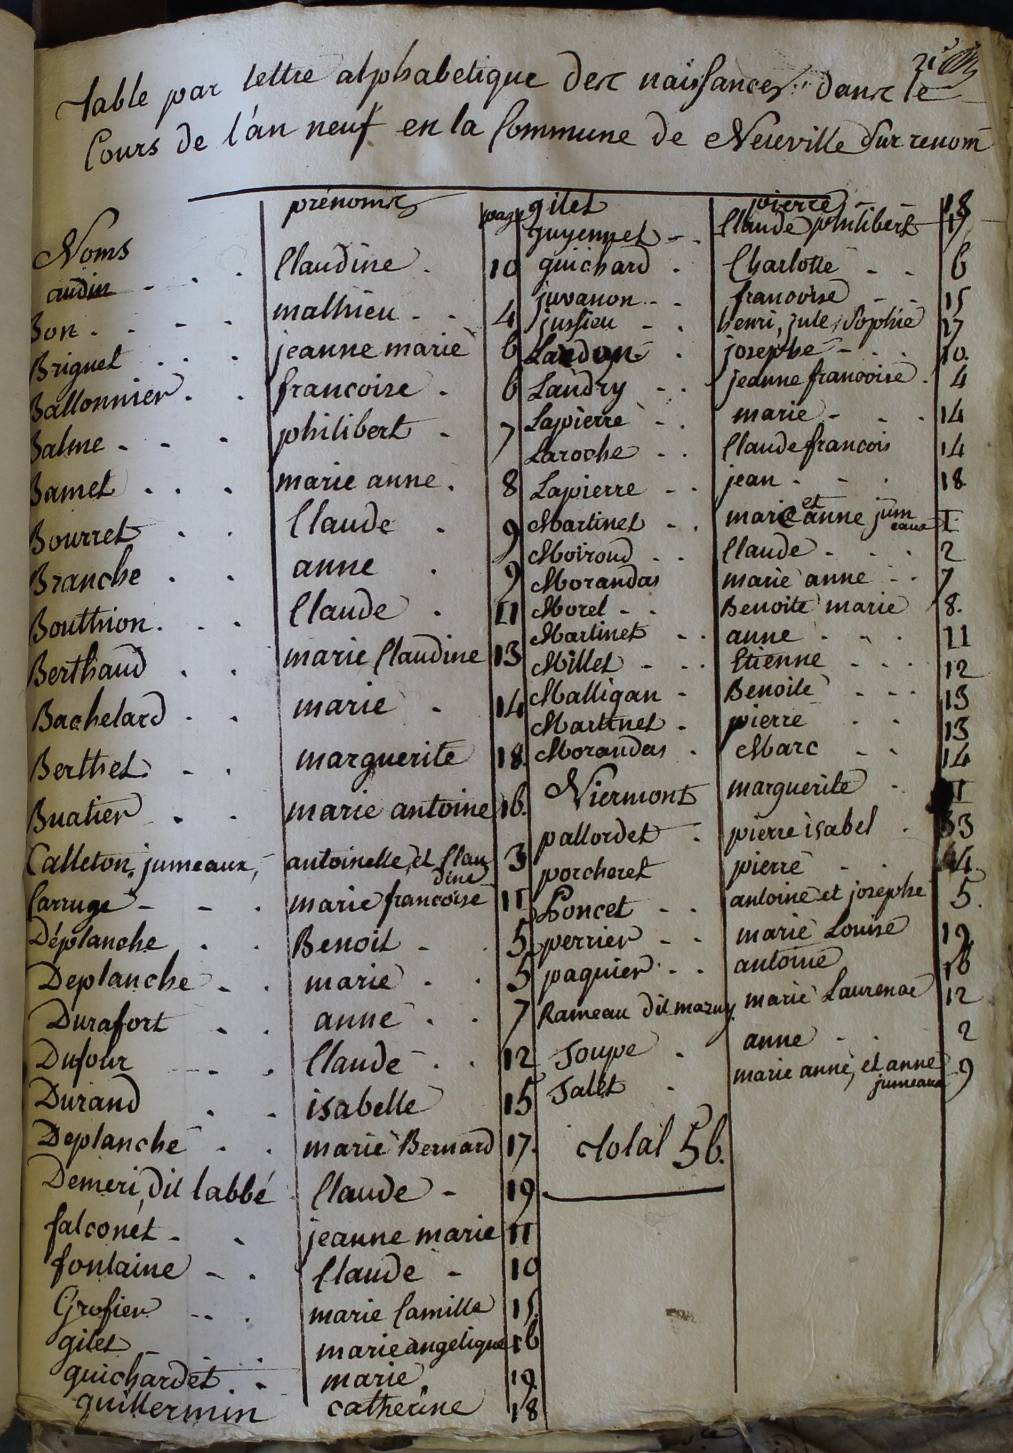 table par lettre alphabetique des naissances dans le
Cours de l'an neuf en la Commune de Neuville sur renom
Noms prénoms page
audin Claudine 10
Bon mathieu 4
Briguet jeanne marie 6
Ballonnier francoise 6
Balme philibert 7
Bamet marie anne 8
Bourret Claude 9
Branche anne 9
Bouthion Claude 11
Berthaud marie Claudine 13
Bachelard marie 14
Berthet marguerite 18
Buatier marie antoine 16
Calleton, jumeaux, antoinette, et Claudine 3
Carruge marie francoise 11
Déplanche Benoit 5
Deplanche marie 5
Durafort anne 7
Dufour Claude 12
Durand isabelle 15
Deplanche marie Bernard 17
Demeri, dit labbé Claude 19
falconet jeanne marie 11
fontaine Claude 10
Grofier marie Camille 15
gilet marie angelique 16
guichardet marie 19
guillermin catherine 18
gilet pierre 18
guyennet Claude philibert 17
guichard Charlotte 6
juvanon francoise 15
jussieu henri, jule, Sophie 17
Landon josephe 10
Landry jeanne francoise 4
Lapierre marie 14
Laroche Claude francois 14
Lapierre jean 18
Martinet marie et anne jumeaux I
Moiroud Claude 2
Morandas marie anne 7
Morel Benoite marie 8
Martinet anne 11
Millet Etienne 12
Malligan Benoite 13
Martinet pierre 13
Morandas Marc 14
Niermont marguerite
pallordet pierre isabel
porcheret pierre
Poncet antoine et josephe 5
perrier marie Louise 19
paquier antoine 16
Rameau dit mazuy marie Laurence 12
Toupe anne 2
Talet marie anne, et anne jumeaux 9
total 56.